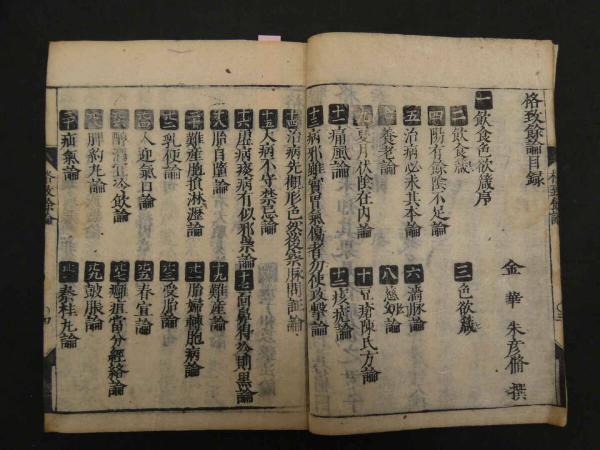 格致餘論目録
金華 朱彦脩 撰
一 飲食色欲箴序
二 飲食箴 三 色欲箴
四 陽有餘陰不足論
五 治病必求其本論 六 濇脉論
七 養老論 八 慈幼論
九 夏月伏陰在内論 十 豆瘡陳氏方論
十一 痛風論 十二 痎瘧論
十三 病邪雖實胃氣傷者勿使攻擊論
十四 治病先觀形色然後察脉問証論
十五 大病不守禁忌論
十六 虛病痰病有似邪祟論 十七 面鼻得冷則黑論
十八 胎自墮論 十九 難産論
二十 難産胞損淋瀝論 廿一 胎婦轉胞病論
廿二 乳硬論 廿三 受胎論
廿四 人迎氣口論 廿五 春宣論
廿六 醇酒宜冷飲論 廿七 癰疽當分經絡論
廿八 脾約丸論 廿九 皷脹論
三十 疝氣論 卅一 秦桂丸論
格致餘論